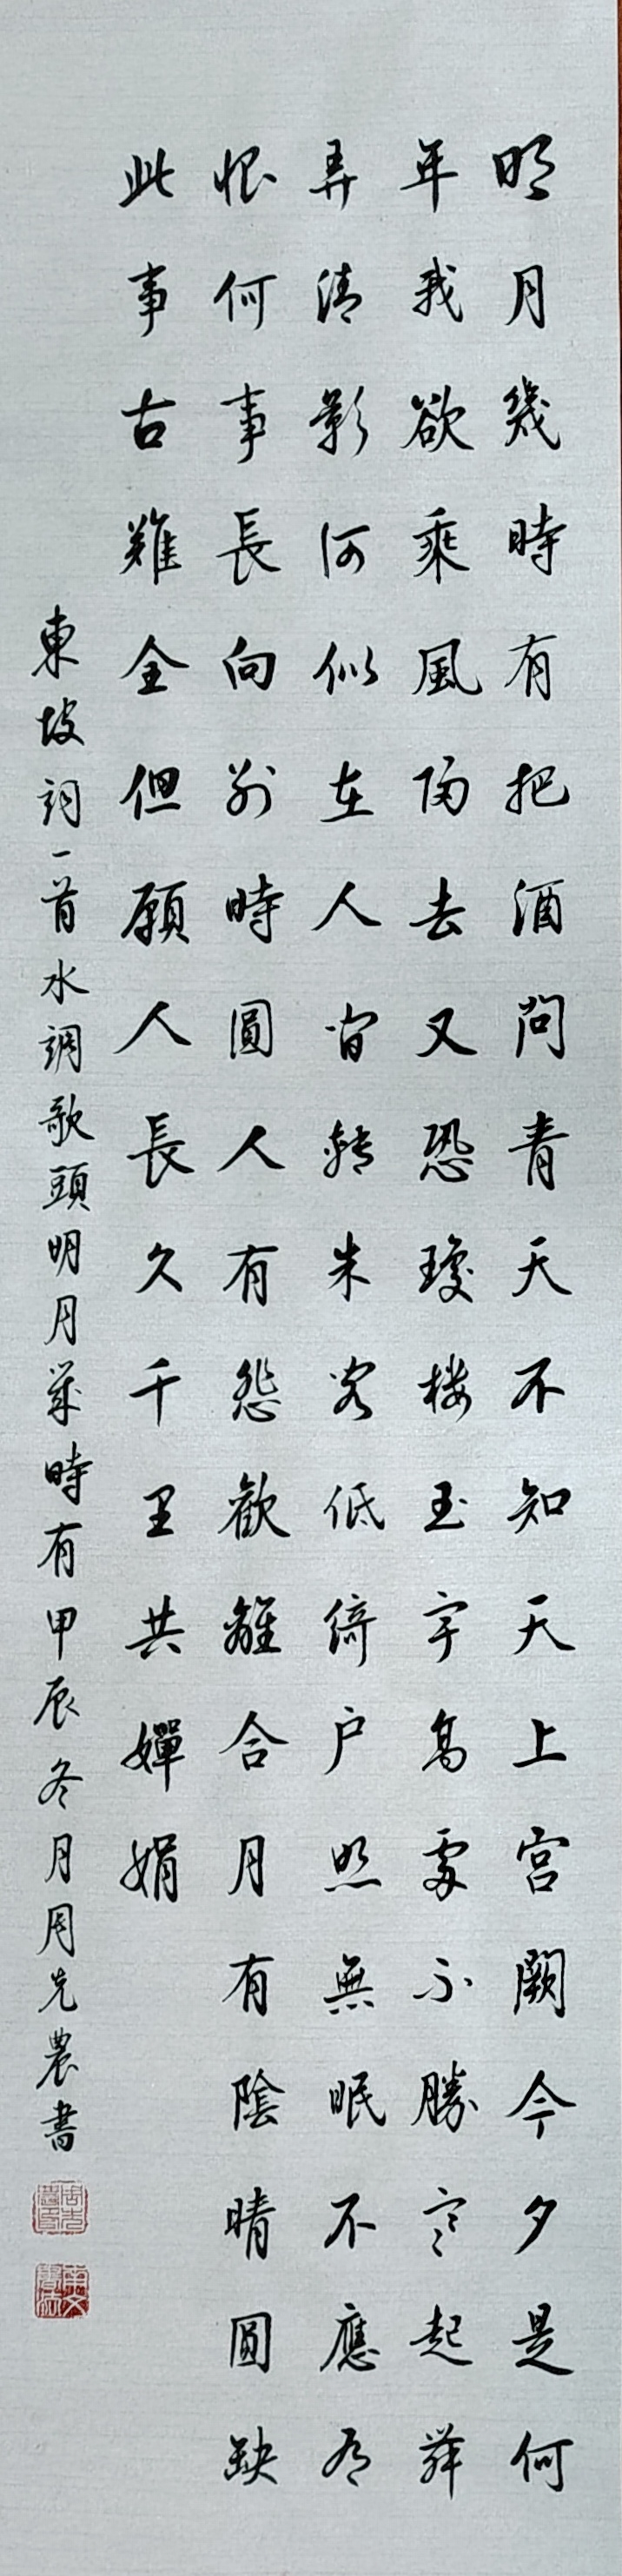 明月幾時有把酒問青天不知天上宮闕今夕是何
年我欲乘風歸去又恐瓊樓玉宇高處不勝寒起舞
弄清影何似在人間轉朱閣低綺户照無眠不應有
恨何事長向别時圓人有悲歡離合月有陰晴圓缺
此事古難全但願人長久千里共嬋娟
東坡詞一首水調歌頭明月幾時有甲辰冬月周先農書